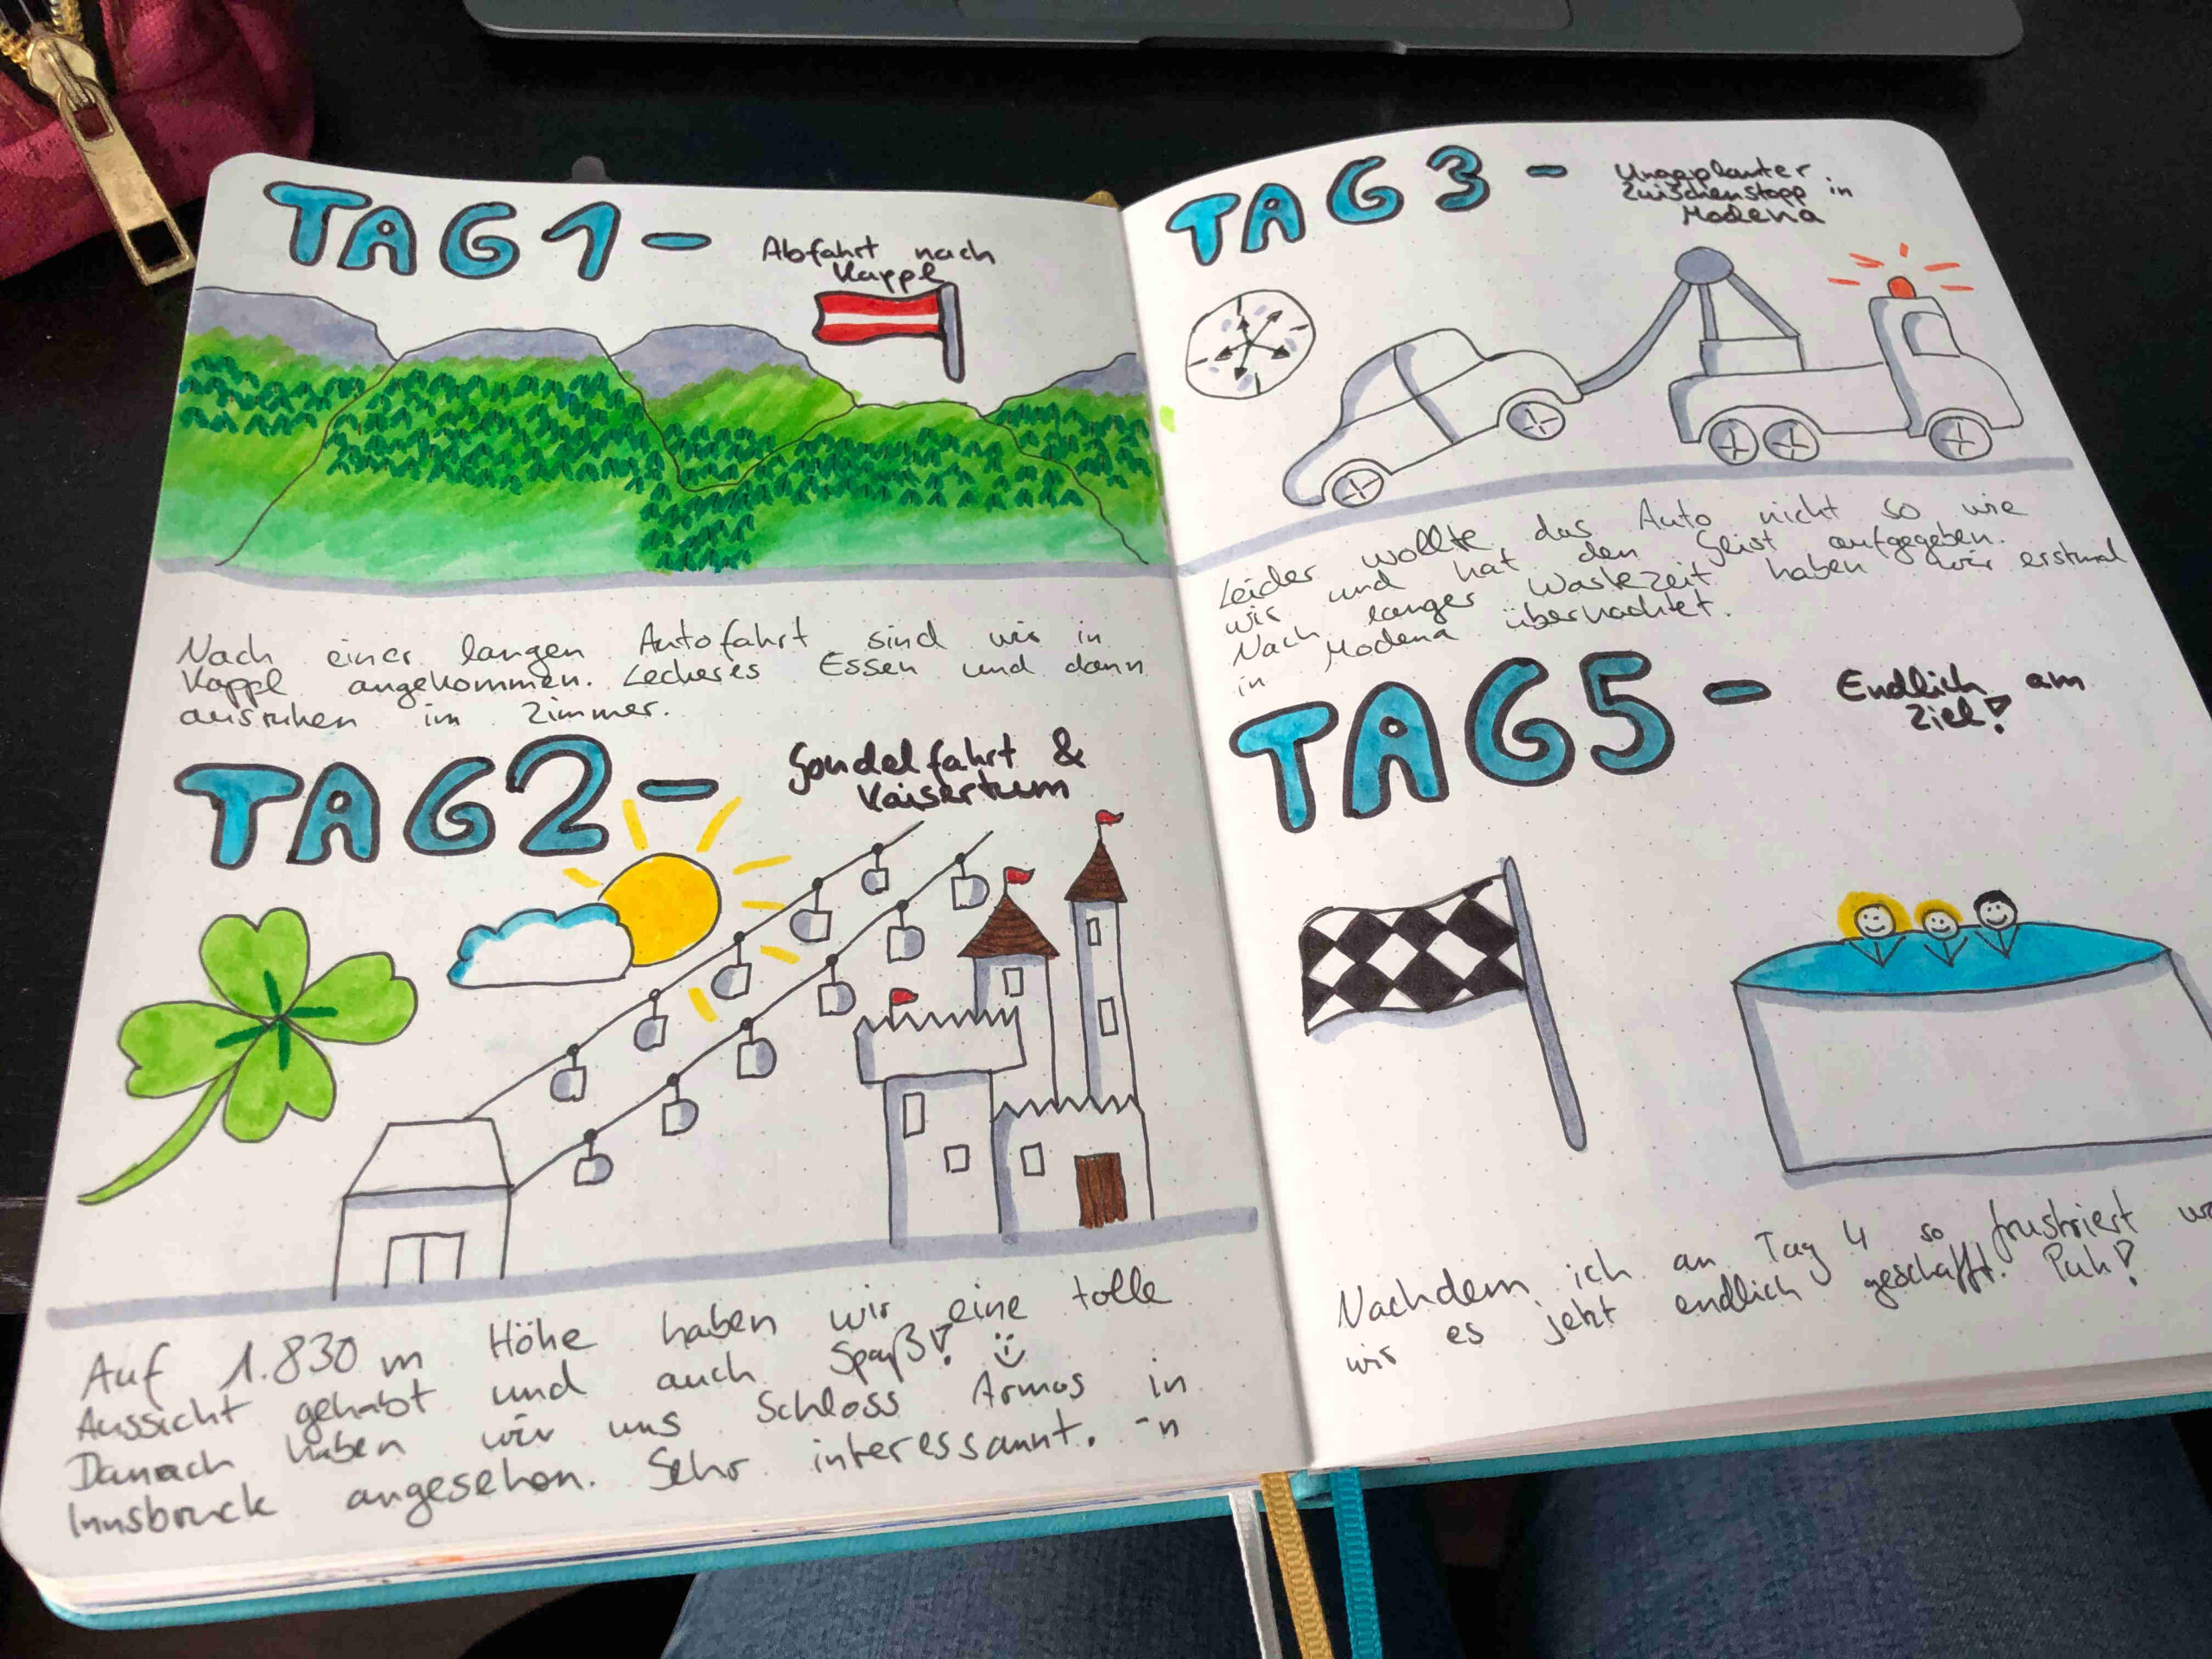 TAG 1 - Abfahrt nach
Kappl
Nach einer langen Autofahrt sind wir in
Kappl angekommen. Leckeres Essen und dann
ausruhen im Zimmer.
TAG 2 - Gondelfahrt &
Kaisertum
Auf 1.830 m Höhe haben wir eine tolle
Aussicht gehabt und auch Spaß! :)
Danach haben wir uns Schloss Armas in
Innsbruck angesehen. Sehr interessannt. -n
TAG 3 - Ungeplanter
Zwischenstopp in
Modena
Leider wollte das Auto nicht so wie
wir und hat den Geist aufgegeben.
Nach langer Wartezeit haben wir erstmal
in Modena übernachtet.
TAG 5 - Endlich am
Ziel!
Nachdem ich an Tag 4 so frustriert
wir es jetzt endlich geschafft. Puh!